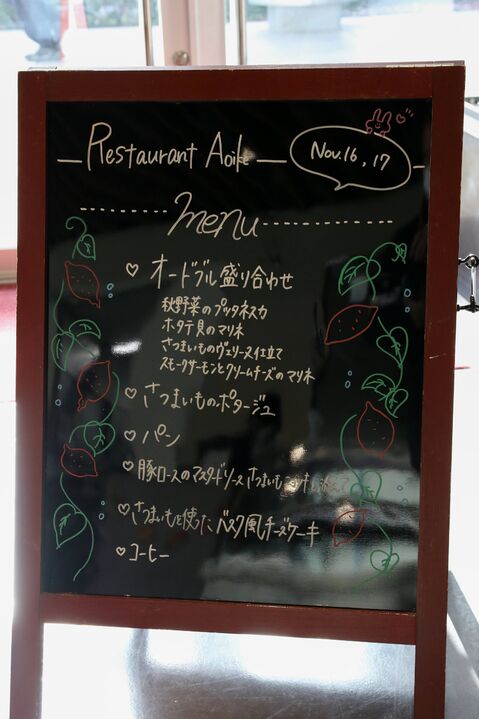 Restaurant Aoike
Nov.16, 17
menu
オードブル盛り合わせ
秋野菜のプッタネスカ
ホタテ貝のマリネ
さつまいものヴェリーヌ仕立て
スモークサーモンとクリームチーズのマリネ
さつまいものポタージュ
パン
豚ロースのマスタードソース さつまいも
さつまいもを使ったバスク風チーズケーキ
コーヒー